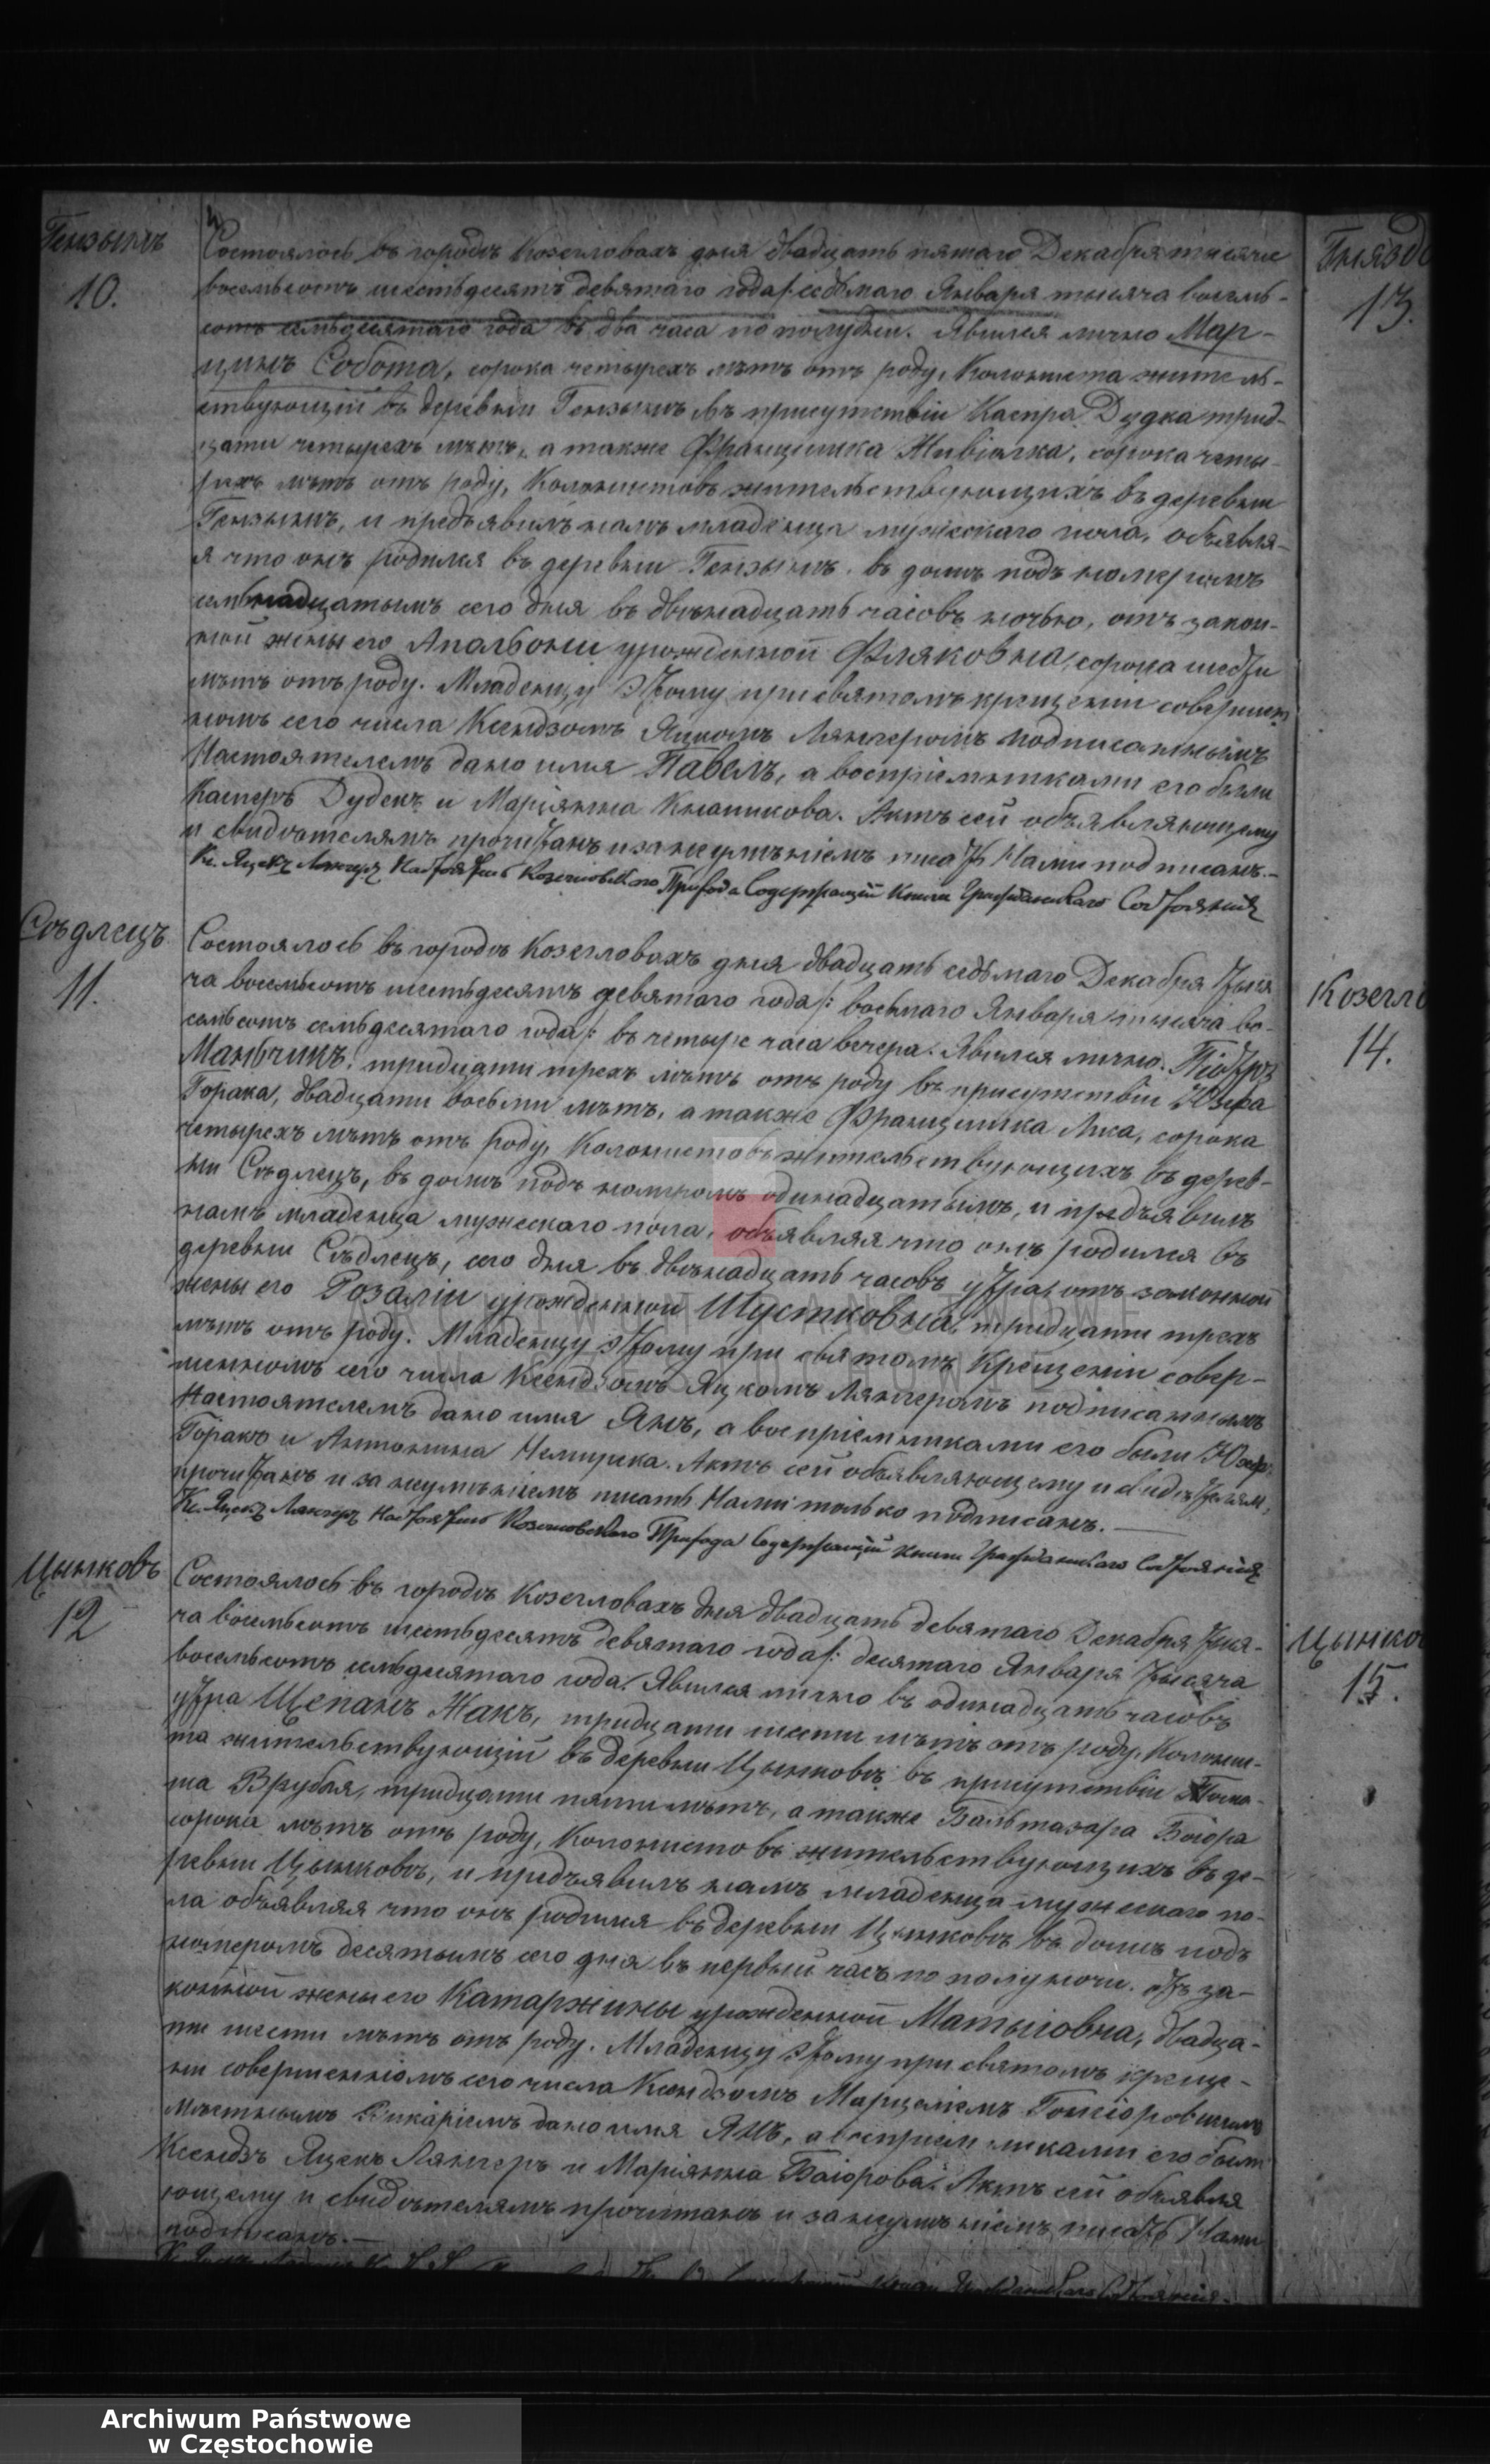 Гензынъ
10.
Состоялось въ городѣ Козегловахъ дня двадцать пятаго Декабря тысяча
восемьсотъ шестьдесятъ девятаго года /: седмаго Января тысяча восемь-
сотъ семьдесятаго года въ два часа по полудни. Явился лично Мар-
цинъ Собота, сорока четырехъ лѣтъ отъ роду, Колониста житель-
ствующій въ деревни Гензынѣ въ присутствіи Каспра Дудка трид-
цати четырехъ лѣтъ, а также Францишка сорока четы-
рехъ лѣтъ отъ роду, Колонистовъ жительствующихъ въ деревни
Гензынѣ, и предъявилъ намъ младенца мужескаго пола, объявля-
я что онъ родился въ деревни Гензынѣ въ домѣ подъ номеромъ
семнадцатымъ сего дня въ двѣнадцать часовъ ночью, отъ закон-
ной жены его Апольонии урожденной Фляковна, сорока шести
лѣтъ отъ роду. Младенцу этому при святомъ крещении совершен
номъ сего числа Ксендзомъ Яцкомъ Лянгеромъ подписаннымъ
Настоятелемъ дано имя Павелъ, а воспріемниками его были
Касперъ Дудекъ и Маріянна Кнапикова. Актъ сей объявляющему
и свидѣтелямъ прочитанъ и за неумѣніемъ писать Нами подписанъ.-
Кс. Яцекъ Лангеръ Настоятель Козегловскаго Прихода Содержащій Книги Гражданскаго Состоянія
Сѣдлецъ
11.
Состоялось въ городѣ Козегловахъ дня двадцать седьмаго Декабря тыся
ча восемьсотъ шестьдесятъ девятаго года /: восьмаго Января тысяча во-
семьсотъ семьдесятаго года /: въ четыре часа вечера. Явился лично Піотръ
Маньчикъ, тридцати трехъ лѣтъ отъ роду въ присутствіи Юзефа
Горака, двадцати восьми лѣтъ, а также Францишка Лиса, сорока
четырехъ лѣтъ отъ роду, Колонистовъ жительствующихъ въ дерев-
ни Сѣдлецъ, въ домѣ подъ номеромъ одинадцатымъ, и предъявилъ
намъ младенца мужескаго пола, объявляя что онъ родился въ
деревни Сѣдлецъ, сего дня въ двѣнадцать часовъ утра, отъ законной
жены его Розаліи урожденной Шустковна, тридцати трехъ
лѣтъ отъ роду. Младенцу этому при святомъ Крещеніи совер-
шенномъ сего числа Ксендзомъ Яцкомъ Лянгеромъ подписаннымъ
Настоятелемъ дано имя Янъ, а воспріемниками его были Юзефъ
Горакъ и Антонина Немирска. Актъ сей объявляющему и свидѣтелям,
прочитанъ и за неумѣніемъ писать Нами только подписанъ.
Кс. Яцекъ Лангеръ Настоятель Козегловскаго Прихода Содержащій Книги Гражданскаго Состоянія
Цынковъ
12
Состоялось въ городѣ Козегловахъ дня двадцать девятаго Декабря тыся-
ча восемьсотъ шестьдесятъ девятаго года /: десятаго Января тысяча
восемьсотъ семьдесятаго года. Явился лично въ одинадцать часовъ
утра Щепанъ Жакъ, тридцати шести лѣтъ отъ роду, Колонис-
та жительствующій въ деревни Цынковѣ въ присутствіи Тома-
ша Врубля, тридцати пяти лѣтъ, а также Бальтазара Баіора
сорока лѣтъ отъ роду, Колонистовъ жительствующихъ въ де-
ревни Цынковѣ, и предъявилъ намъ младенца мужескаго по-
ла объявляя что онъ родился въ деревни Цынковѣ въ домѣ подъ
номеромъ десятымъ сего дня въ первый часъ по полуночи. Отъ за-
конной жены его Катаржины урожденной Матысовна, двадца-
ти шести лѣтъ отъ роду. Младенцу этому при святомъ креще-
ни совершенномъ сего числа Ксендзомъ Марцеліемъ
мѣстнымъ Викаріемъ дано имя Янъ, а воспріемниками его были
Ксендзъ Яцекъ Лянгеръ и Маріянна Баіорова. Актъ сей объявля
ющему и свидѣтелямъ прочитанъ и за неумѣніемъ писать Нами
подписанъ.-
Книги Гражданскаго Состоянія.
Гнязд
13.
Козегло
14.
Цынко
15.
ARCHIWUM PAŃSTWOWE
W CZĘSTOCHOWIE
Archiwum Państwowe
w Częstochowie